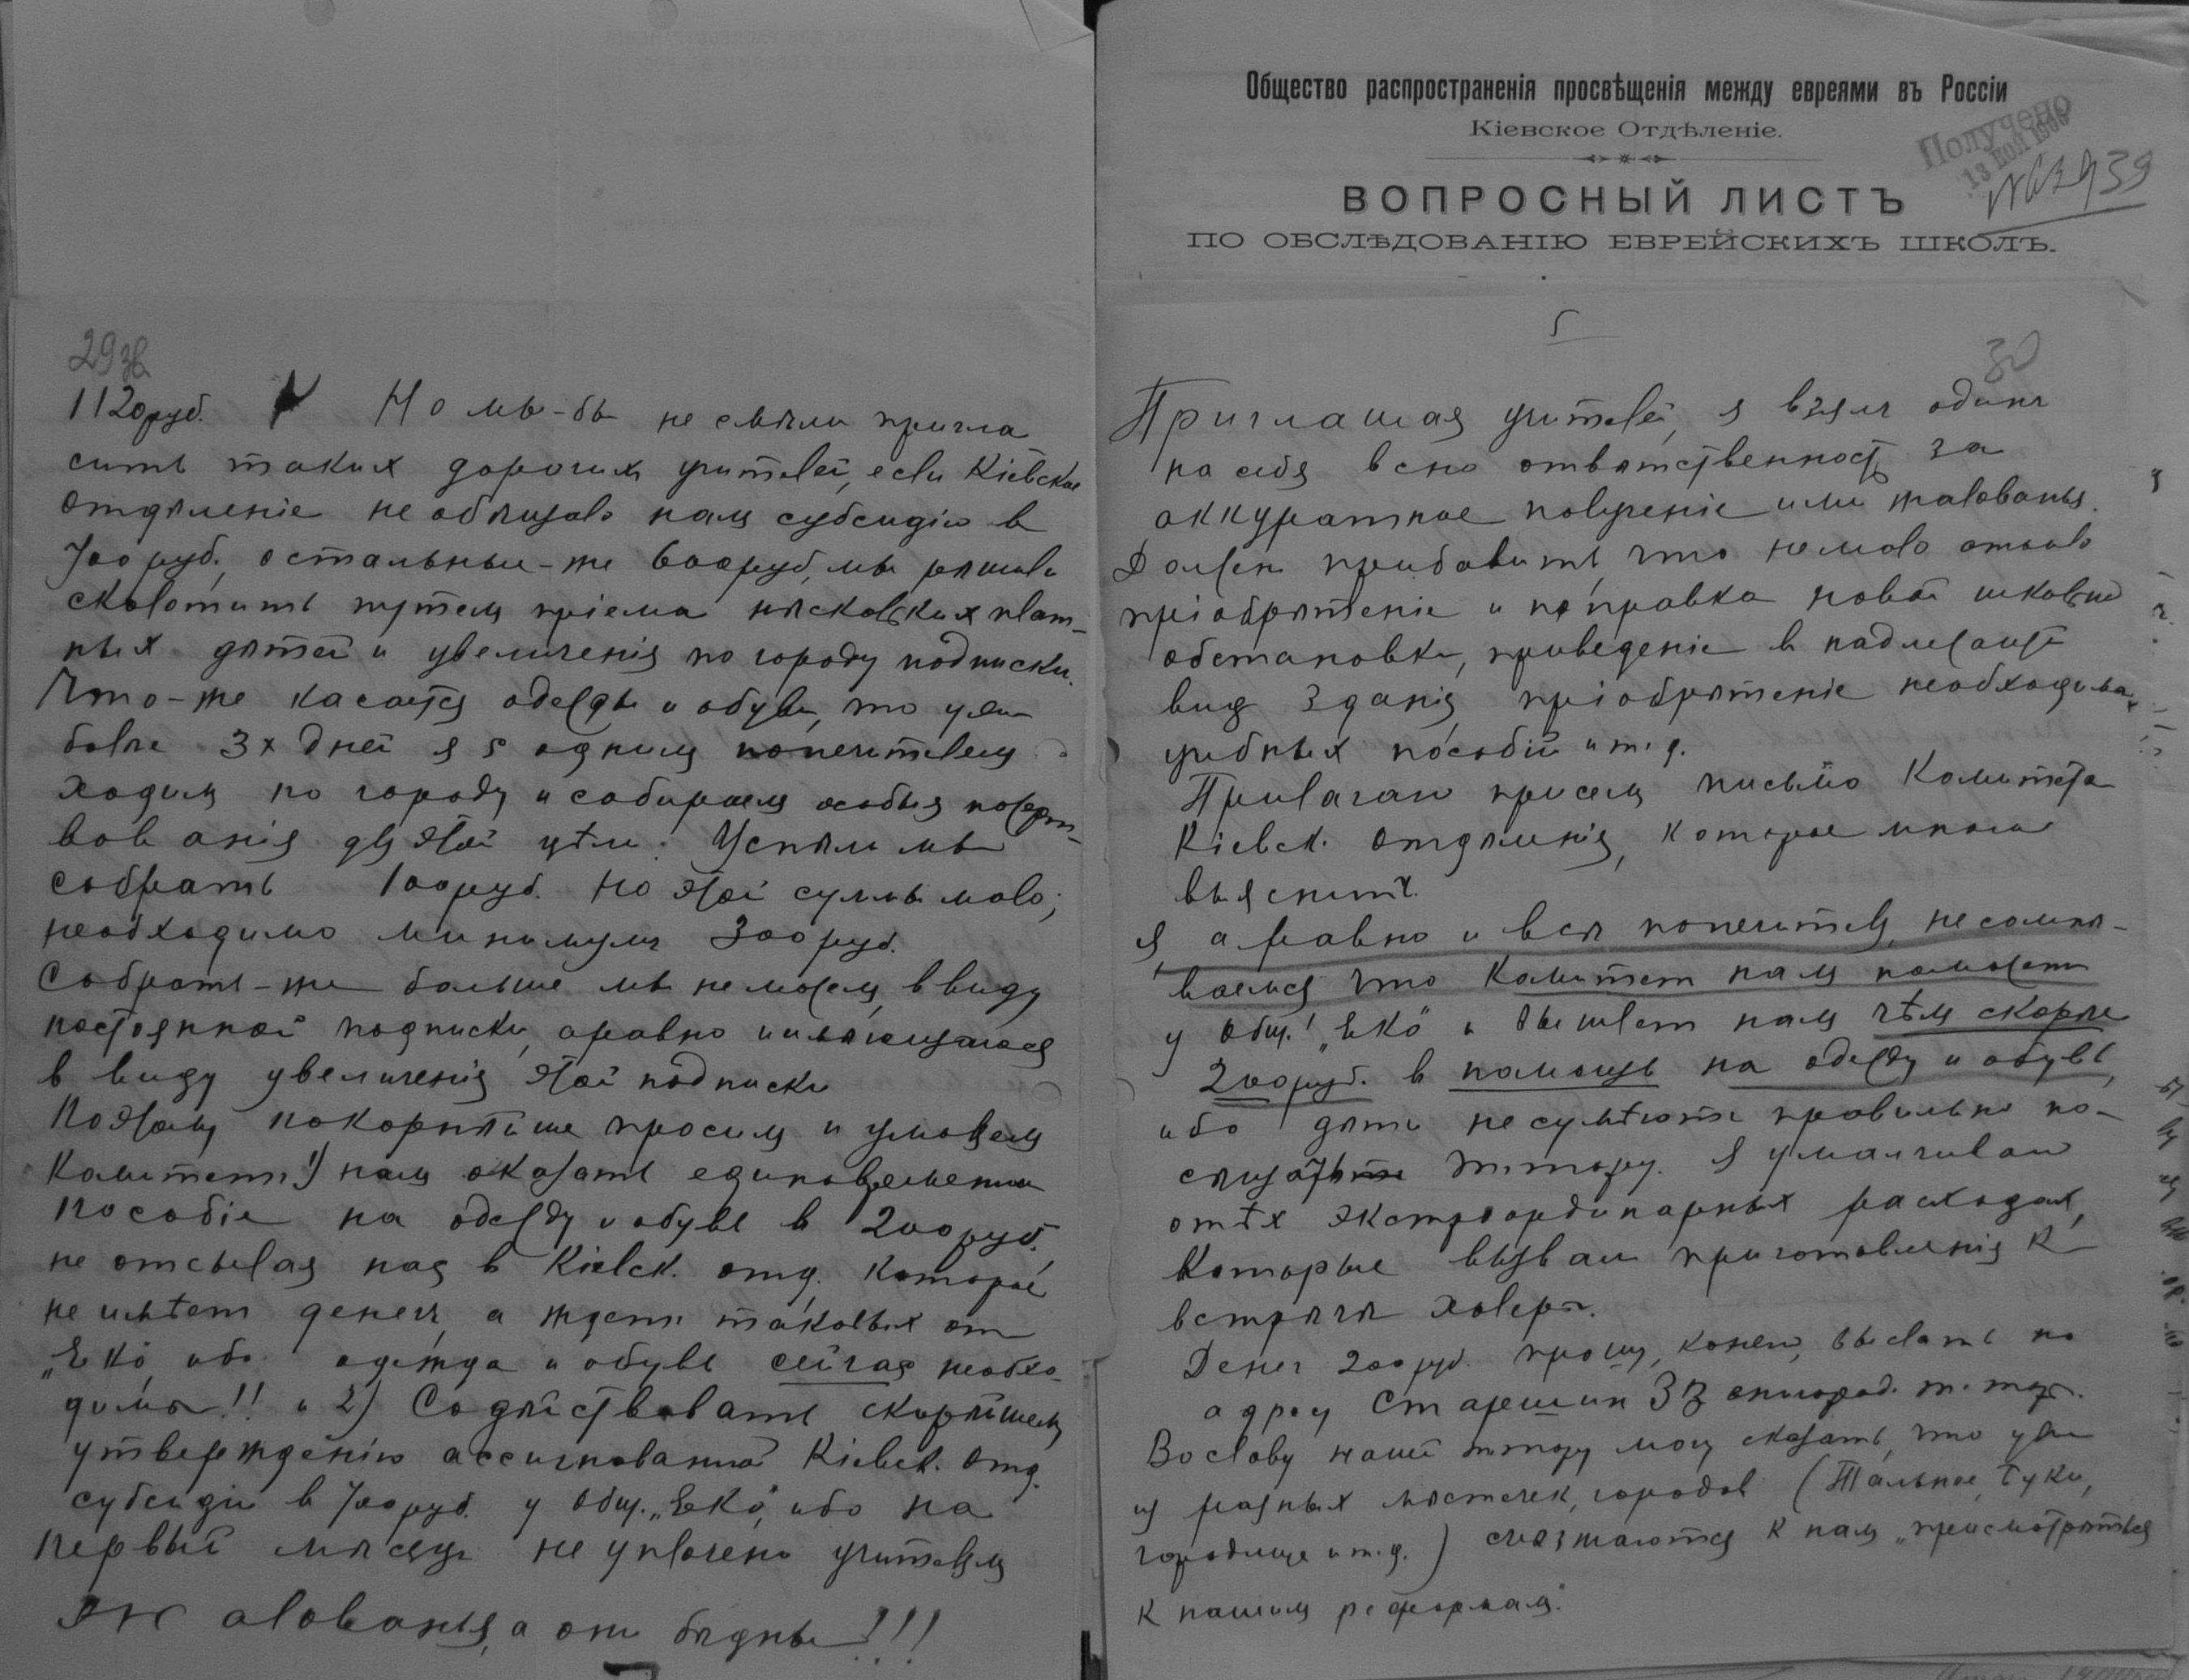 29 зв
1120 руб. Но мы-бы не смѣли пригла
сить таких дорогих учителей, если Кіевское
отдѣленіе не обѣщало нам субсидію в
700 руб., остальные-же 600 руб, мы рѣшили
сколотить путем пріема нѣскольких плат-
ных дѣтей и увеличенія по городу подписки.
Что-же касается одежды и обуви, то уже
болѣе 3х дней я с одним попечителем
ходим по городу и собираем особыя пожерт-
вованія для этой цѣли. Успѣли мы
собрать 100 руб. Но этой суммы мало;
необходимо минимум 300 руб.
Собрать-же больше мы не можем, в виду
постоянной подписки, а равно и имѣющагося
в виду увеличенія этой подписки
Поэтому покорнѣйше просим и умоляем
Комитет 1) нам оказать единовременное
пособіе на одежду и обувь в 200 руб.,
не отсылая нас в Кіевск. отд. которое
не имѣет денег, а ждет таковых от
„ЕКО", ибо одежда и обувь сейчас необхо-
димы!! и 2) Содѣйствовать скорѣйшему
утвержденію ассигнованной Кіевск. Отд.
субсидіи в 700 руб. у Общ. „ЕКО", ибо на
первый мѣсяц не уплочено учителям
жалованья, а они бѣдны!!!
Общество распространенія просвѣщенія между евреями въ Россіи
Кіевское Отдѣленіе.
Получено
ВОПРОСНЫЙ ЛИСТЪ
ПО ОБСЛѢДОВАНІЮ ЕВРЕЙСКИХЪ ШКОЛЪ.
5
30
Приглашая учителей, я взял один
на себя всю отвѣтственность за
аккуратное полученіе ими жалованья.
Должен прибавить, что немало стоило
пріобрѣтеніе и поправка новой школьной
обстановки, приведеніе в надлежащій
вид зданія, пріобрѣтеніе необходимых
учебных пособій и т. д.
Прилагаю при сем письмо Комитета
Кіевск. Отдѣленія, которое многое
выяснит.
Я а равно и всѣ попечители, не сомнѣ-
ваемся что Комитет нам поможет
у Общ. „ЕКО" и вышлет нам чѣм скорѣе
200 руб. в помощь на одежду и обувь,
ибо дѣти не сумѣют правильно по-
сѣщать т-тору. Я умалчиваю
о тѣх экстроординарных расходах,
которые вызвали приготовленія к
встрѣчѣ холеры.
Денег 200 руб. прошу, конечно, выслать по
адресу Старшин Звенигород. т. торы.
Во славу нашей т-тору могу сказать, что уже
из разных мѣстечек, городов (Тальное, Буки,
Городище и т. д.) съѣзжаются к нам „присмотрѣться
к нашим реформам".